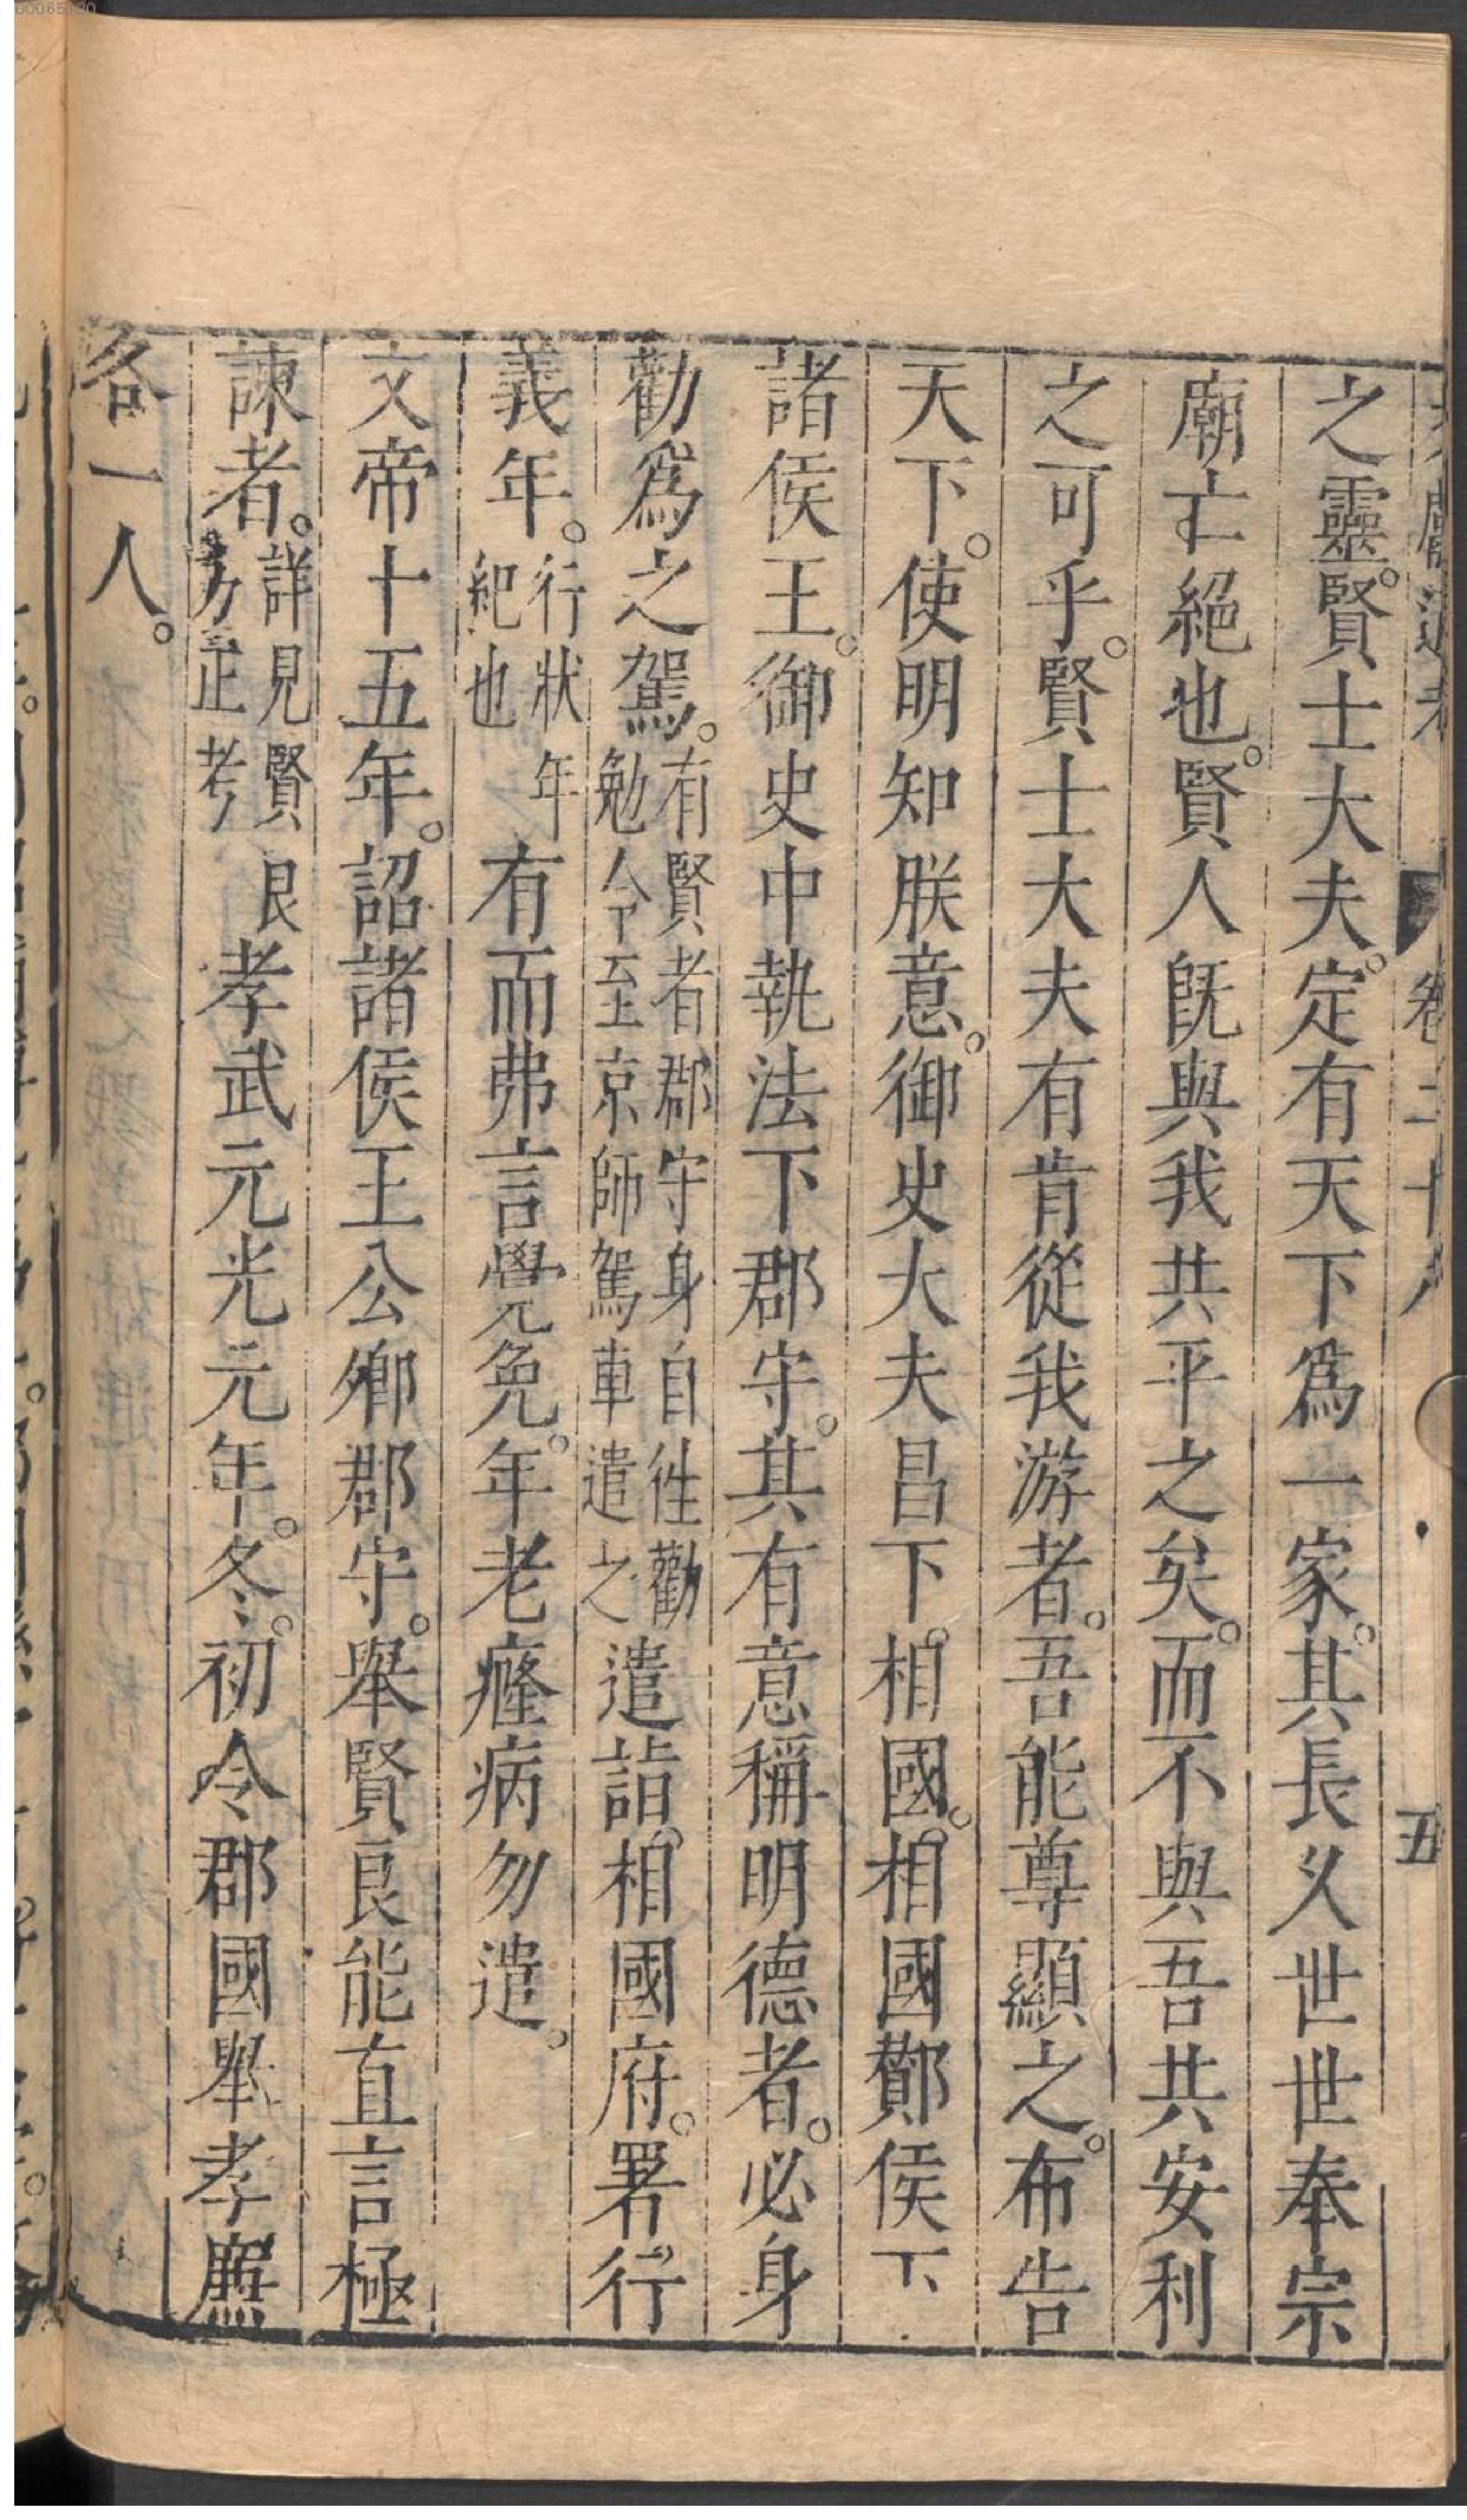 之靈。賢士大夫。定有天下爲一家。其長久世世奉宗
廟亡絕也。賢人旣與我共平之矣。而不與吾共安利
之可乎。賢士大夫有肯從我游者。吾能尊顯之。布告
天下。使明知朕意。御史大夫昌下。相國。相國酇侯下
諸侯王。御史中執法下郡守。其有意稱明德者。必身
勸爲之駕。有賢者郡守身自往勸勉令至京師駕車遣之遣詣。相國府。署行
義年。行狀年紀也有而弗言覺免。年老癃病勿遣。
文帝十五年。詔諸侯王公卿郡守。舉賢良能直言極
諫者。詳見賢良方正考孝武元光元年。冬。初令郡國舉孝廉
各一人。
五